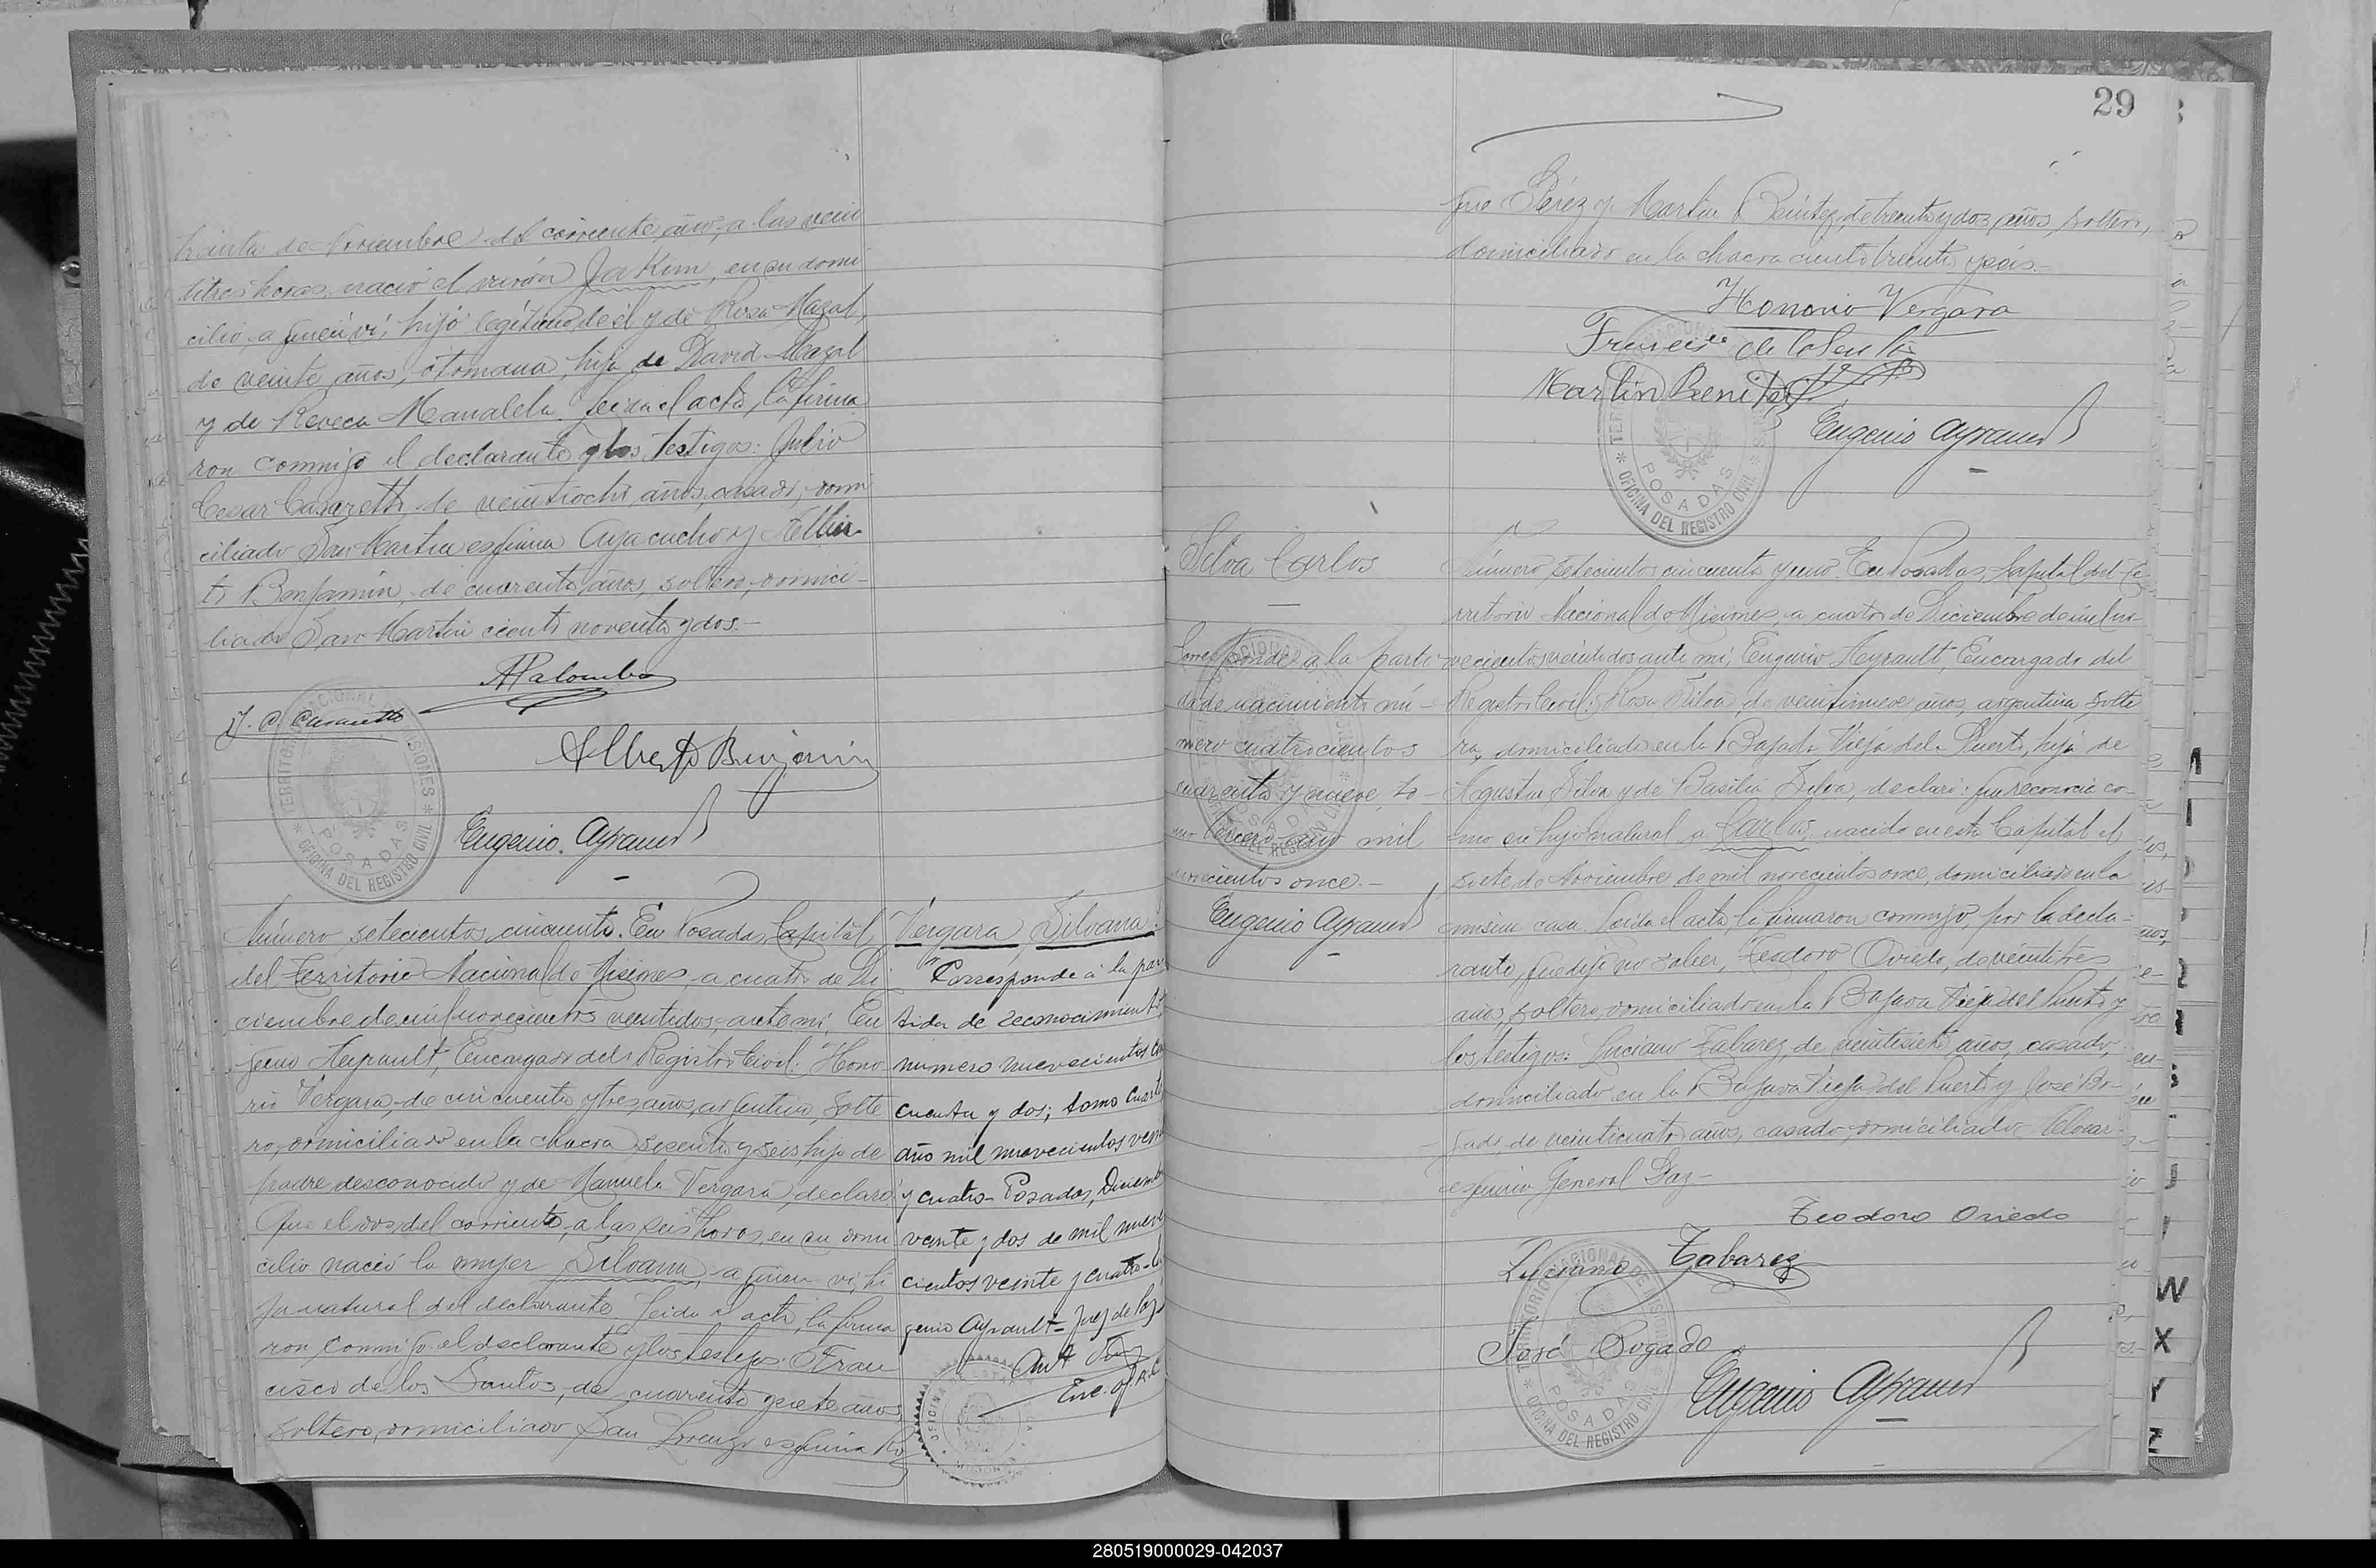 treinta de Noviembre del corriente año, a las vein
titres horas, nació el varón Jakim, en su domi
cilio, a quien ví; hijo legítimo de él y de Rosa Mazal,
de veinte años, otomana, hija de David Mazal
y de Reveca Manalela. Leida el acta, la firma
ron conmigo el declarante y los testigos: Julio
Cesar Casareth, de veintiocho años, casado, domi
ciliado San Martin esquina Ayacucho y Alber
to Benjamín, de cuarenta años, soltero, domici-
liado San Martin ciento noventa y dos.-
APalomba
J. C. Casaretto
Alberto Benjamin
Eugenio Ayrault
TERRITORIO NACIONAL DE MISIONES
POSADAS
OFICINA DEL REGISTRO CIVIL
Número setecientos cincuenta. En Posadas, Capital
del Territorio Nacional de Misiones, a cuatro de Di
ciembre de mil novecientos veintidos, ante mí, Eu
genio Ayrault, Encargado del Registro Civil: Hono
rio Vergara, de cincuenta y tres años, argentino, solte
ro, domiciliado en la chacra sesenta y seis, hijo de
padre desconocido y de Manuela Vergara, declaró:
Que el dos del corriente, a las seis horas, en su domi
cilio nació la mujer Silvana, a quien ví, hi
ja natural del declarante. Leida el acta, la firma
ron conmigo el declarante y los testigos: Fran
cisco de los Santos, de cuarenta y siete años,
soltero, domiciliado San Lorenzo esquina Ro
Vergara, Silvana.
Corresponde á la par
tida de reconocimiento
número nuevecientos cin
cuenta y dos; tomo cuarto
año mil nuevecientos vein
y cuatro- Posadas, Diciembre
veinte y dos de mil nueve
cientos veinte y cuatro- Eu
genio Ayrault- Juez de Paz
Ant
Enc. of. R.C.
29
que Pérez y Martin Benitez, de treinta y dos años, soltero,
domiciliado en la chacra ciento treinta y seis.-
Honorio Vergara
Francisco de los Santos
Martin Benitez
Eugenio Ayrault
TERRITORIO NACIONAL DE MISIONES
POSADAS
OFICINA DEL REGISTRO CIVIL
Silva Carlos
Corresponde a la parti
da de nacimiento nú-
mero cuatrocientos
cuarenta y nueve, to-
mo tercero año mil
novecientos once.-
Eugenio Ayrault
Número setecientos cincuenta y uno. En Posadas, Capital del Te
rritorio Nacional de Misiones, a cuatro de Diciembre de mil no
vecientos veintidos ante mí, Eugenio Ayrault, Encargado del
Registro Civil: Rosa Silva, de veintinueve años, argentina, solte
ra, domiciliada en la Bajada Vieja del Puerto, hija de
Agustin Silva y de Basilia Silva, declaró: que reconocia co-
mo su hijo natural a Carlos, nacido en esta Capital el
siete de Noviembre de mil novecientos once, domiciliado en la
misma casa. Leida el acta, la firmaron conmigo, por la decla-
rante, que dijo no saber, Teodoro Oviedo, de veintitres
años, soltero, domiciliado en la Bajada Vieja del Puerto y
los testigos: Luciano Tabarez, de veintisiete años, casado,
domiciliado en la Bajada Vieja del Puerto y José Bo-
gado, de veinticuatro años, casado, domiciliado Alvear
esquina General Paz-
Teodoro Oviedo
Luciano Tabarez
José Bogado
Eugenio Ayrault
TERRITORIO NACIONAL DE MISIONES
POSADAS
OFICINA DEL REGISTRO CIVIL
W
X
Y
Z
280519000029-042037